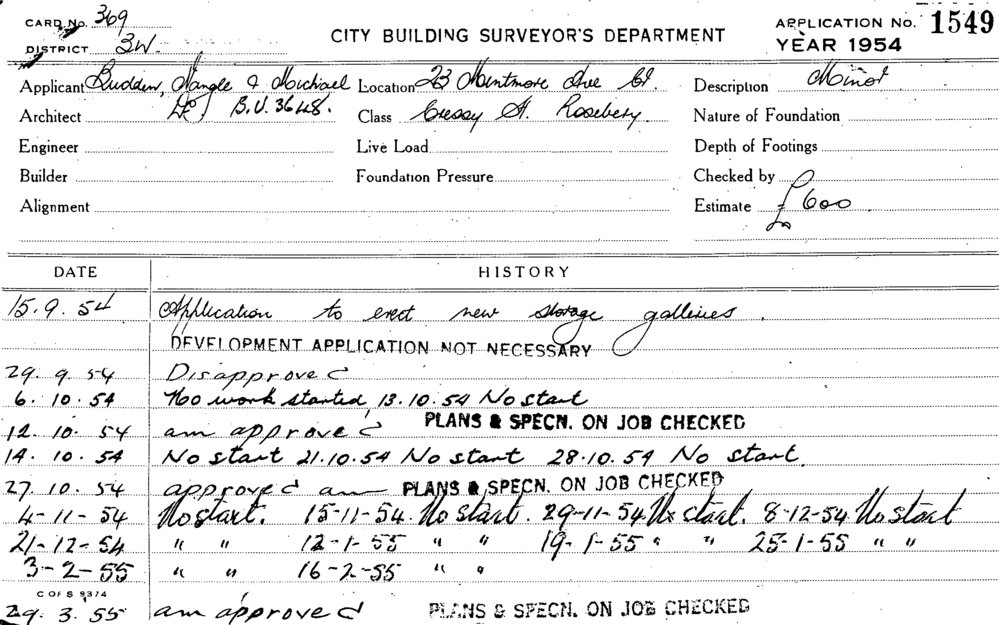 CARD No. 369
DISTRICT 3W.
CITY BUILDING SURVEYOR'S DEPARTMENT
APPLICATION No. 1549
YEAR 1954
Applicant Budden, Nangle & Michael Location 23 Mentmore Ave Cr. Description Minor
Architect B.U. 3648. Class Cressy St. Rosebery. Nature of Foundation
Engineer Live Load Depth of Footings
Builder Foundation Pressure Checked by
Alignment Estimate £600
DATE HISTORY
15.9.54 Application to erect new storage galleries.
DEVELOPMENT APPLICATION NOT NECESSARY
29.9.54 Disapproved
6.10.54 No work started 13.10.54 No start
12.10.54 am approved PLANS & SPECN. ON JOB CHECKED
14.10.54 No start 21.10.54 No start 28.10.54 No start.
27.10.54 approved am PLANS & SPECN. ON JOB CHECKED
4-11-54 No start. 15-11-54. No start. 29-11-54 No start. 8-12-54 No start
21-12-54 " " 12-1-55 " " 19-1-55 " " 25-1-55 " "
3-2-55 " " 16-2-55 " "
C OF S 9374
29.3.55 am approved PLANS & SPECN. ON JOB CHECKED